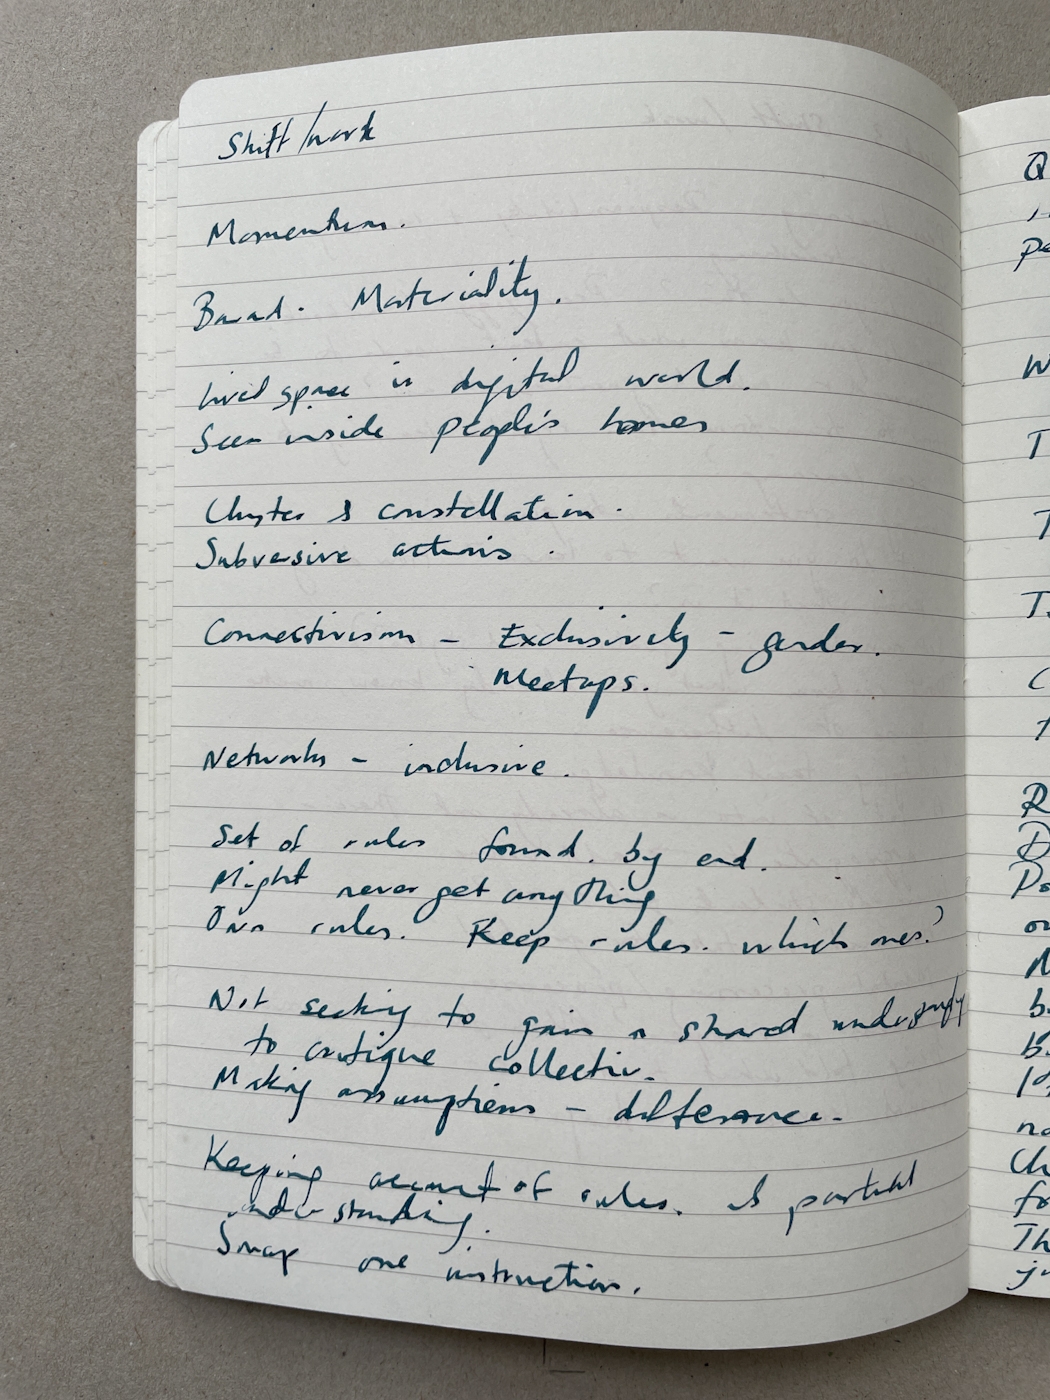 Shift/work
Momentum.
Barad. Materiality.
lived space in digital world.
Seen inside people's homes
Cluster & constellation.
Subversive actions.
Connectivism - Exclusivity - gender.
Meetups.
Networks - inclusive.
Set of rules found. by end.
Might never get anything
Own rules. Keep rules. which ones?
Not seeking to gain a shared understanding
to critique collectiv.
Making assumptions - difference.
Keeping account of rules. Is partial
understanding.
Swap one instruction.
Q
pe
W
T
T
T
C
R
D
ou
b
no
Ch
fo
Th
ju